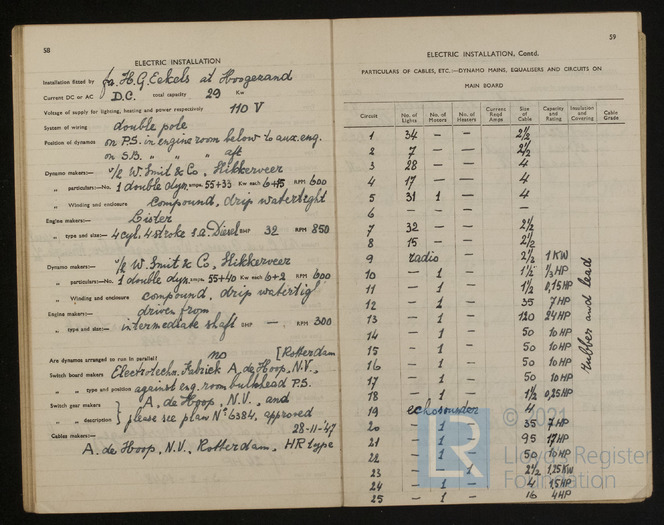 58
ELECTRIC INSTALLATION
Installation fitted by fa. H.G. Eekels at Hoogezand
Current DC or AC D.C. total capacity 29 Kw
Voltage of supply for lighting, heating and power respectively 110 V
System of wiring double pole
Position of dynamos on P.S. in engine room below to aux. eng.
on S.B. " " " aft
Dynamo makers:— v/h W. Smit & Co, Slikkerveer
" particulars:—No. 1 double dyn. amps. 55+33 Kw each 6+15 RPM 600
" Winding and enclosure compound, drip watertight
Engine makers:— Lister
" type and size:— 4 cyl. 4 stroke s.a. Diesel BHP 32 RPM 850
Dynamo makers:— v/h W. Smit & Co, Slikkerveer
" particulars:—No. 1 double dyn. amps. 55+40 Kw each 6+2 RPM 600
" Winding and enclosure compound, drip watertigh
Engine makers:— driven from
" type and size:— intermediate shaft BHP — RPM 300
Are dynamos arranged to run in parallel? no [Rotterdam
Switch board makers Electrotechn. Fabriek A. de Hoop, N.V.,
" " type and position against eng. room bulkhead P.S.
Switch gear makers A. de Hoop, N.V., and
" " description } please see plan No 6384, approved
28-11-'47
Cables makers:— A. de Hoop, N.V., Rotterdam, HR type
59
ELECTRIC INSTALLATION, Contd.
PARTICULARS OF CABLES, ETC.—DYNAMO MAINS, EQUALISERS AND CIRCUITS ON
MAIN BOARD
Circuit No. of Lights No. of Motors No. of Heaters Current Reqd Amps Size of Cable Capacity and Rating Insulation and Covering Cable Grade
1 34 — — 2½
2 7 — — 2½
3 28 — — 4
4 17 — — 4
5 31 1 — 4
6 — — — —
7 32 — — 2½
8 15 — — 2½
9 radio 2½ 1 KW
10 — 1 — 1½ ⅓ HP
11 — 1 — 1½ 0,15 HP
12 — 1 — 35 7 HP
13 — 1 — 120 24 HP
14 — 1 — 50 10 HP
15 — 1 — 50 10 HP
16 — 1 — 50 10 HP
17 — 1 — 50 10 HP
18 — 1 — 1½ 0,25 HP
19 echosounder 4
20 — 1 — 35 7 HP
21 — 1 — 95 17 HP
22 — 1 — 50 10 HP
23 — — 1 2½ 1,25 KW
24 — 1 — 4 1,5 HP
25 — 1 — 16 4 HP
rubber and lead
© 2021
LR
Lloyd's Register
Foundation